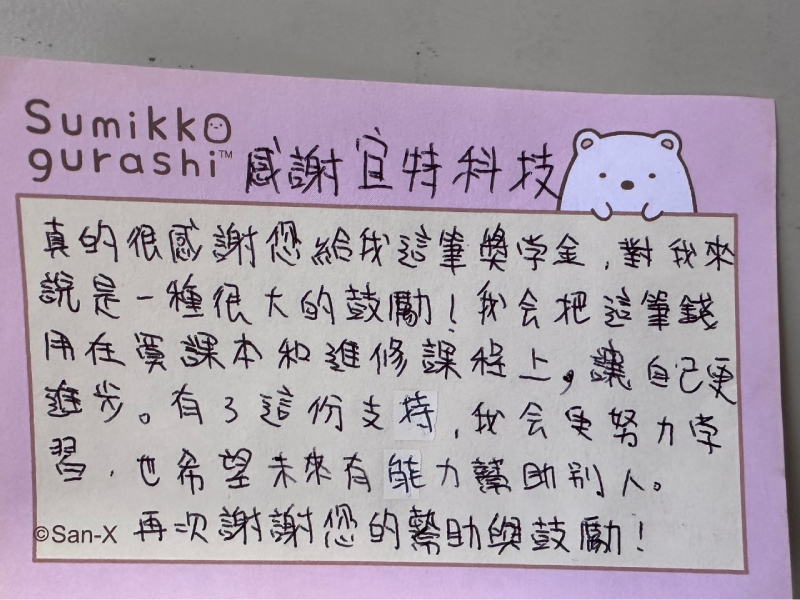 Sumikko
gurashi™
感謝宜特科技
真的很感謝您給我這筆獎学金,對我來
說是一種很大的鼓勵!我会把這筆錢
用在買課本和進修課程上,讓自己更
進步。有了這份支持,我会更努力学
習,也希望未來有能力幫助別人。
©San-X 再次謝謝您的幫助與鼓勵!